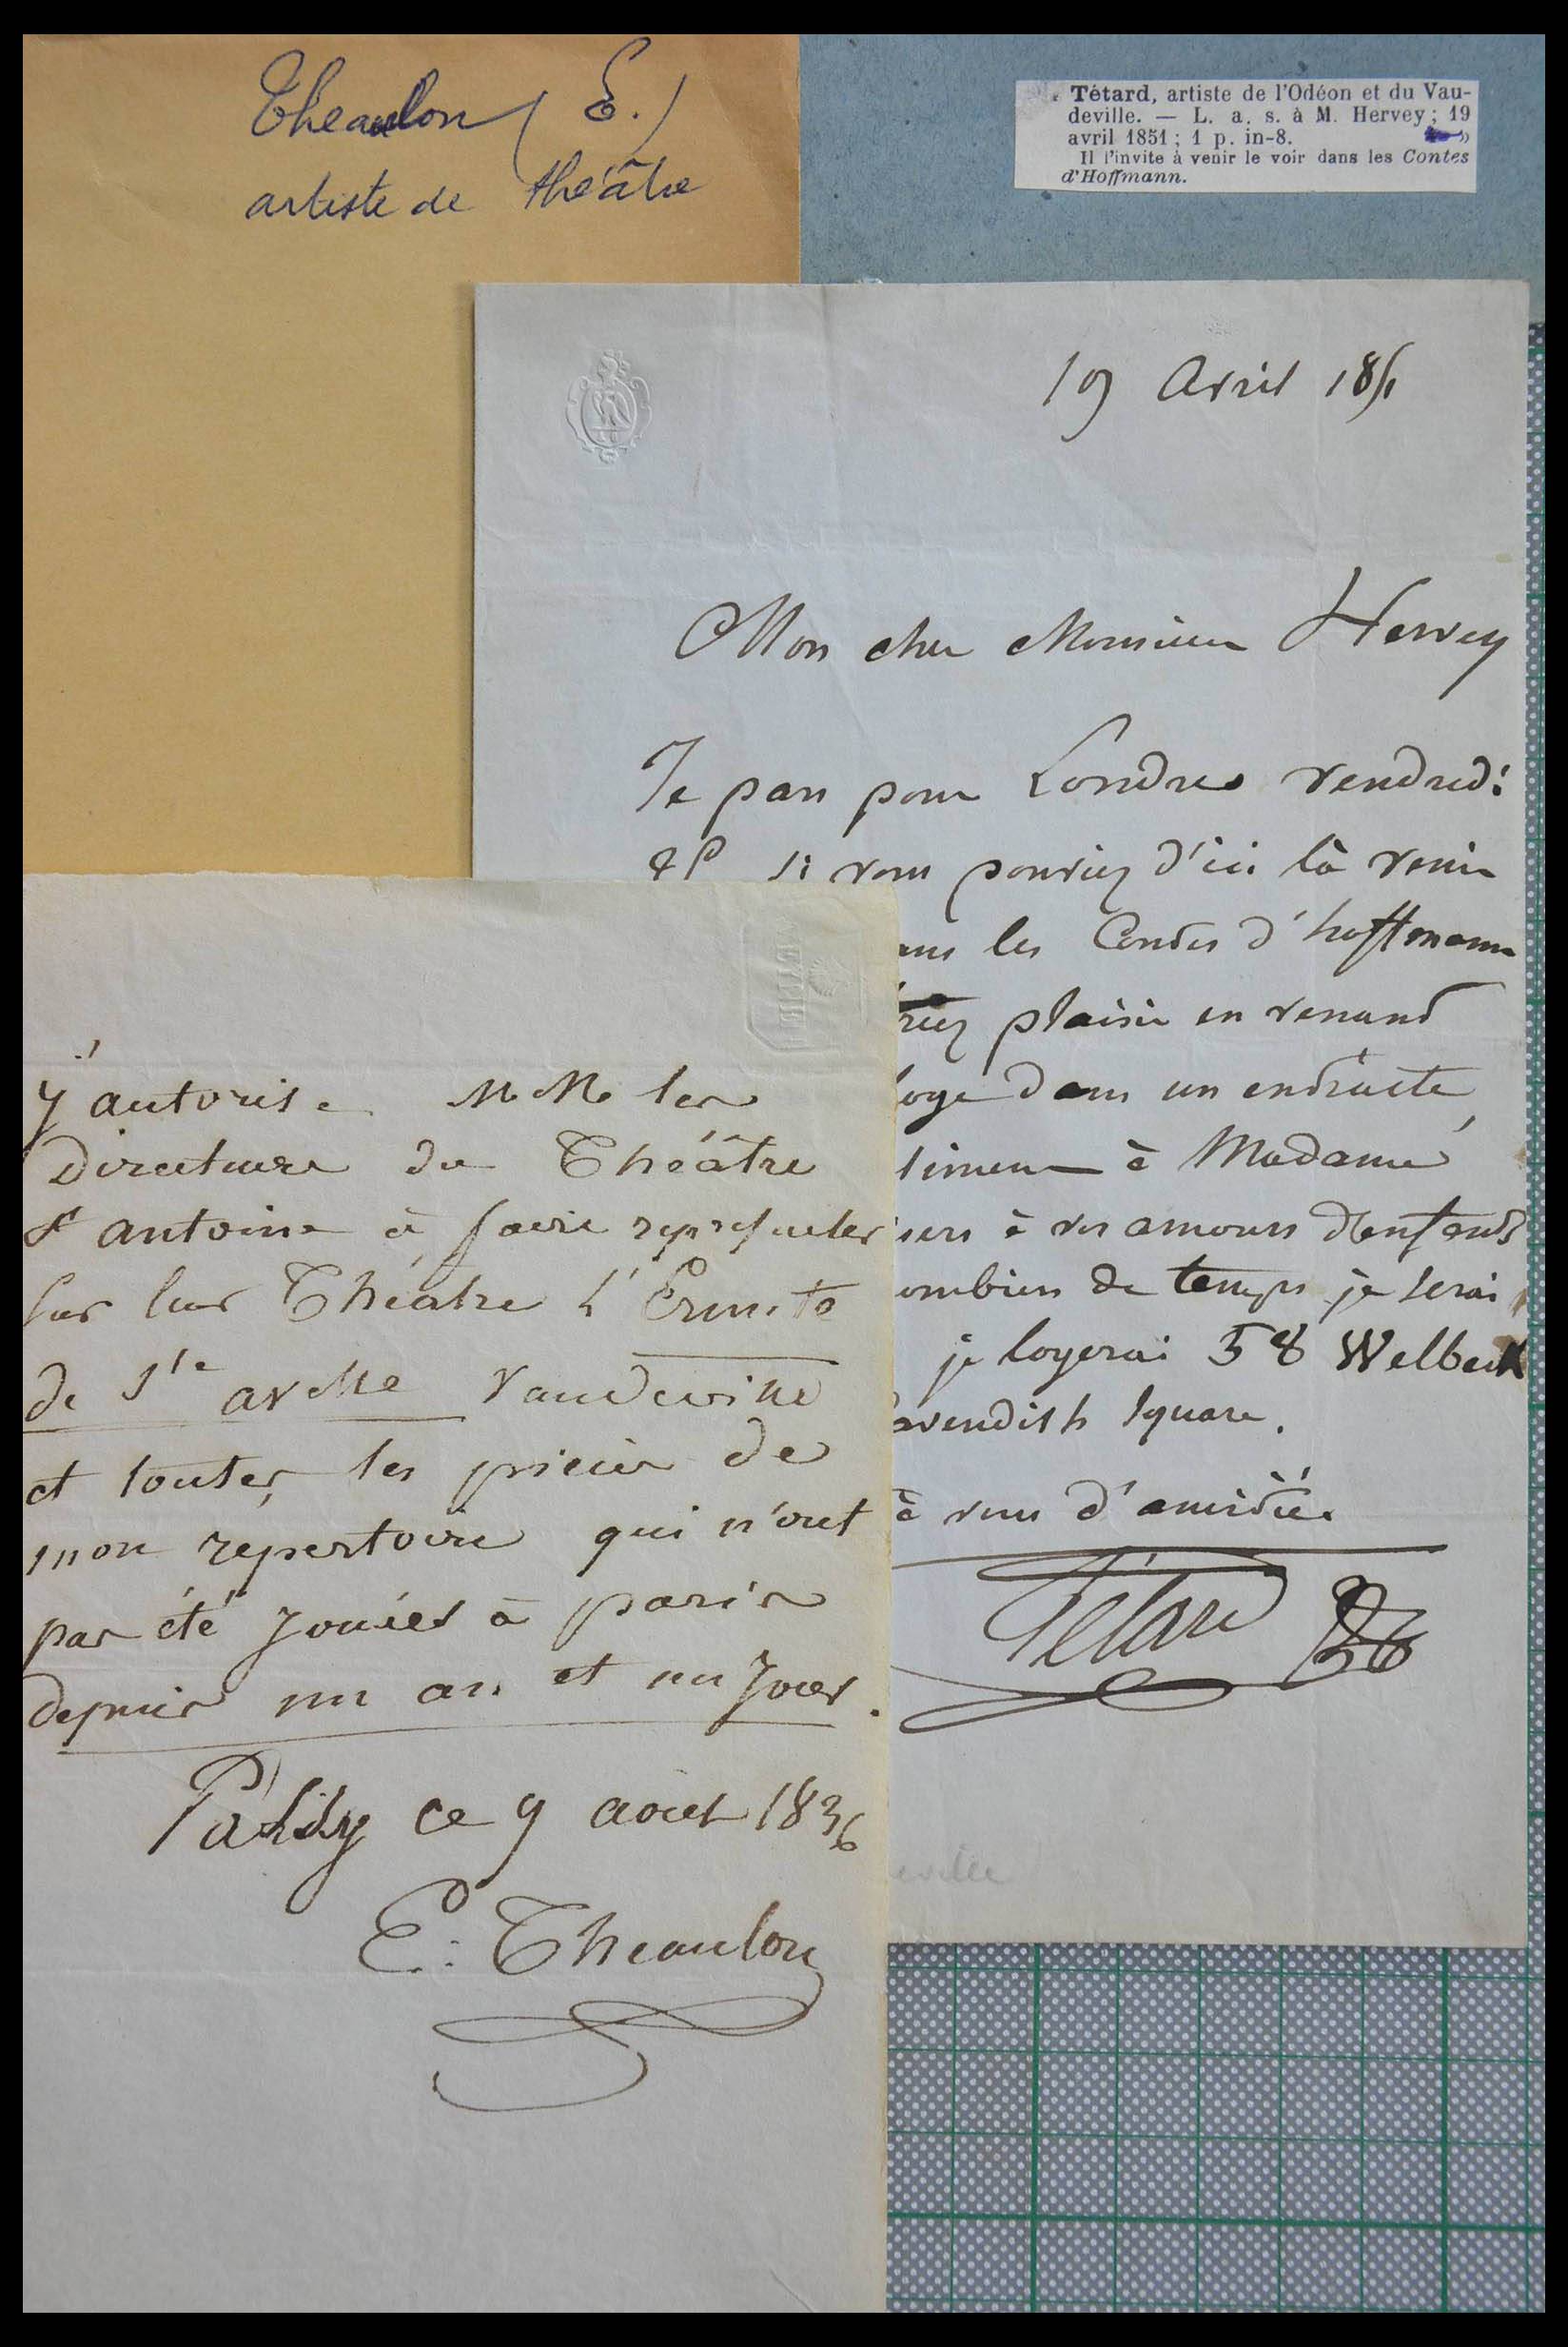 Theaulon (E.)
artiste de théâtre
Tétard, artiste de l'Odéon et du Vau-
deville. — L. a. s. à M. Hervey; 19
avril 1851; 1 p. in-8.
Il l'invite à venir le voir dans les Contes
d'Hoffmann.
19 Avril 1851
Mon cher Monsieur Hervey
Je pars pour Londres vendredi
si vous pouviez d'ici là venir
ans les Contes d'hoffmann
riez plaisir en venand
logé dans un endroite
à Madame
à vos amours d'enfands
ombien de temps je serai
je logerai 58 Welbeck
avendish Square.
à vous d'amitié.
Tétard
j'autorise MM les
Directeurs du Théâtre
St antoine à faire représenter
sur leur Théatre l'Ermite
de Ste avelle Vaudeville
et toutes les pièces de
mon repertoire qui n'ont
pas été jouées à paris
depuis un an et un jour.
Passy ce 9 août 1836
E. Theaulon